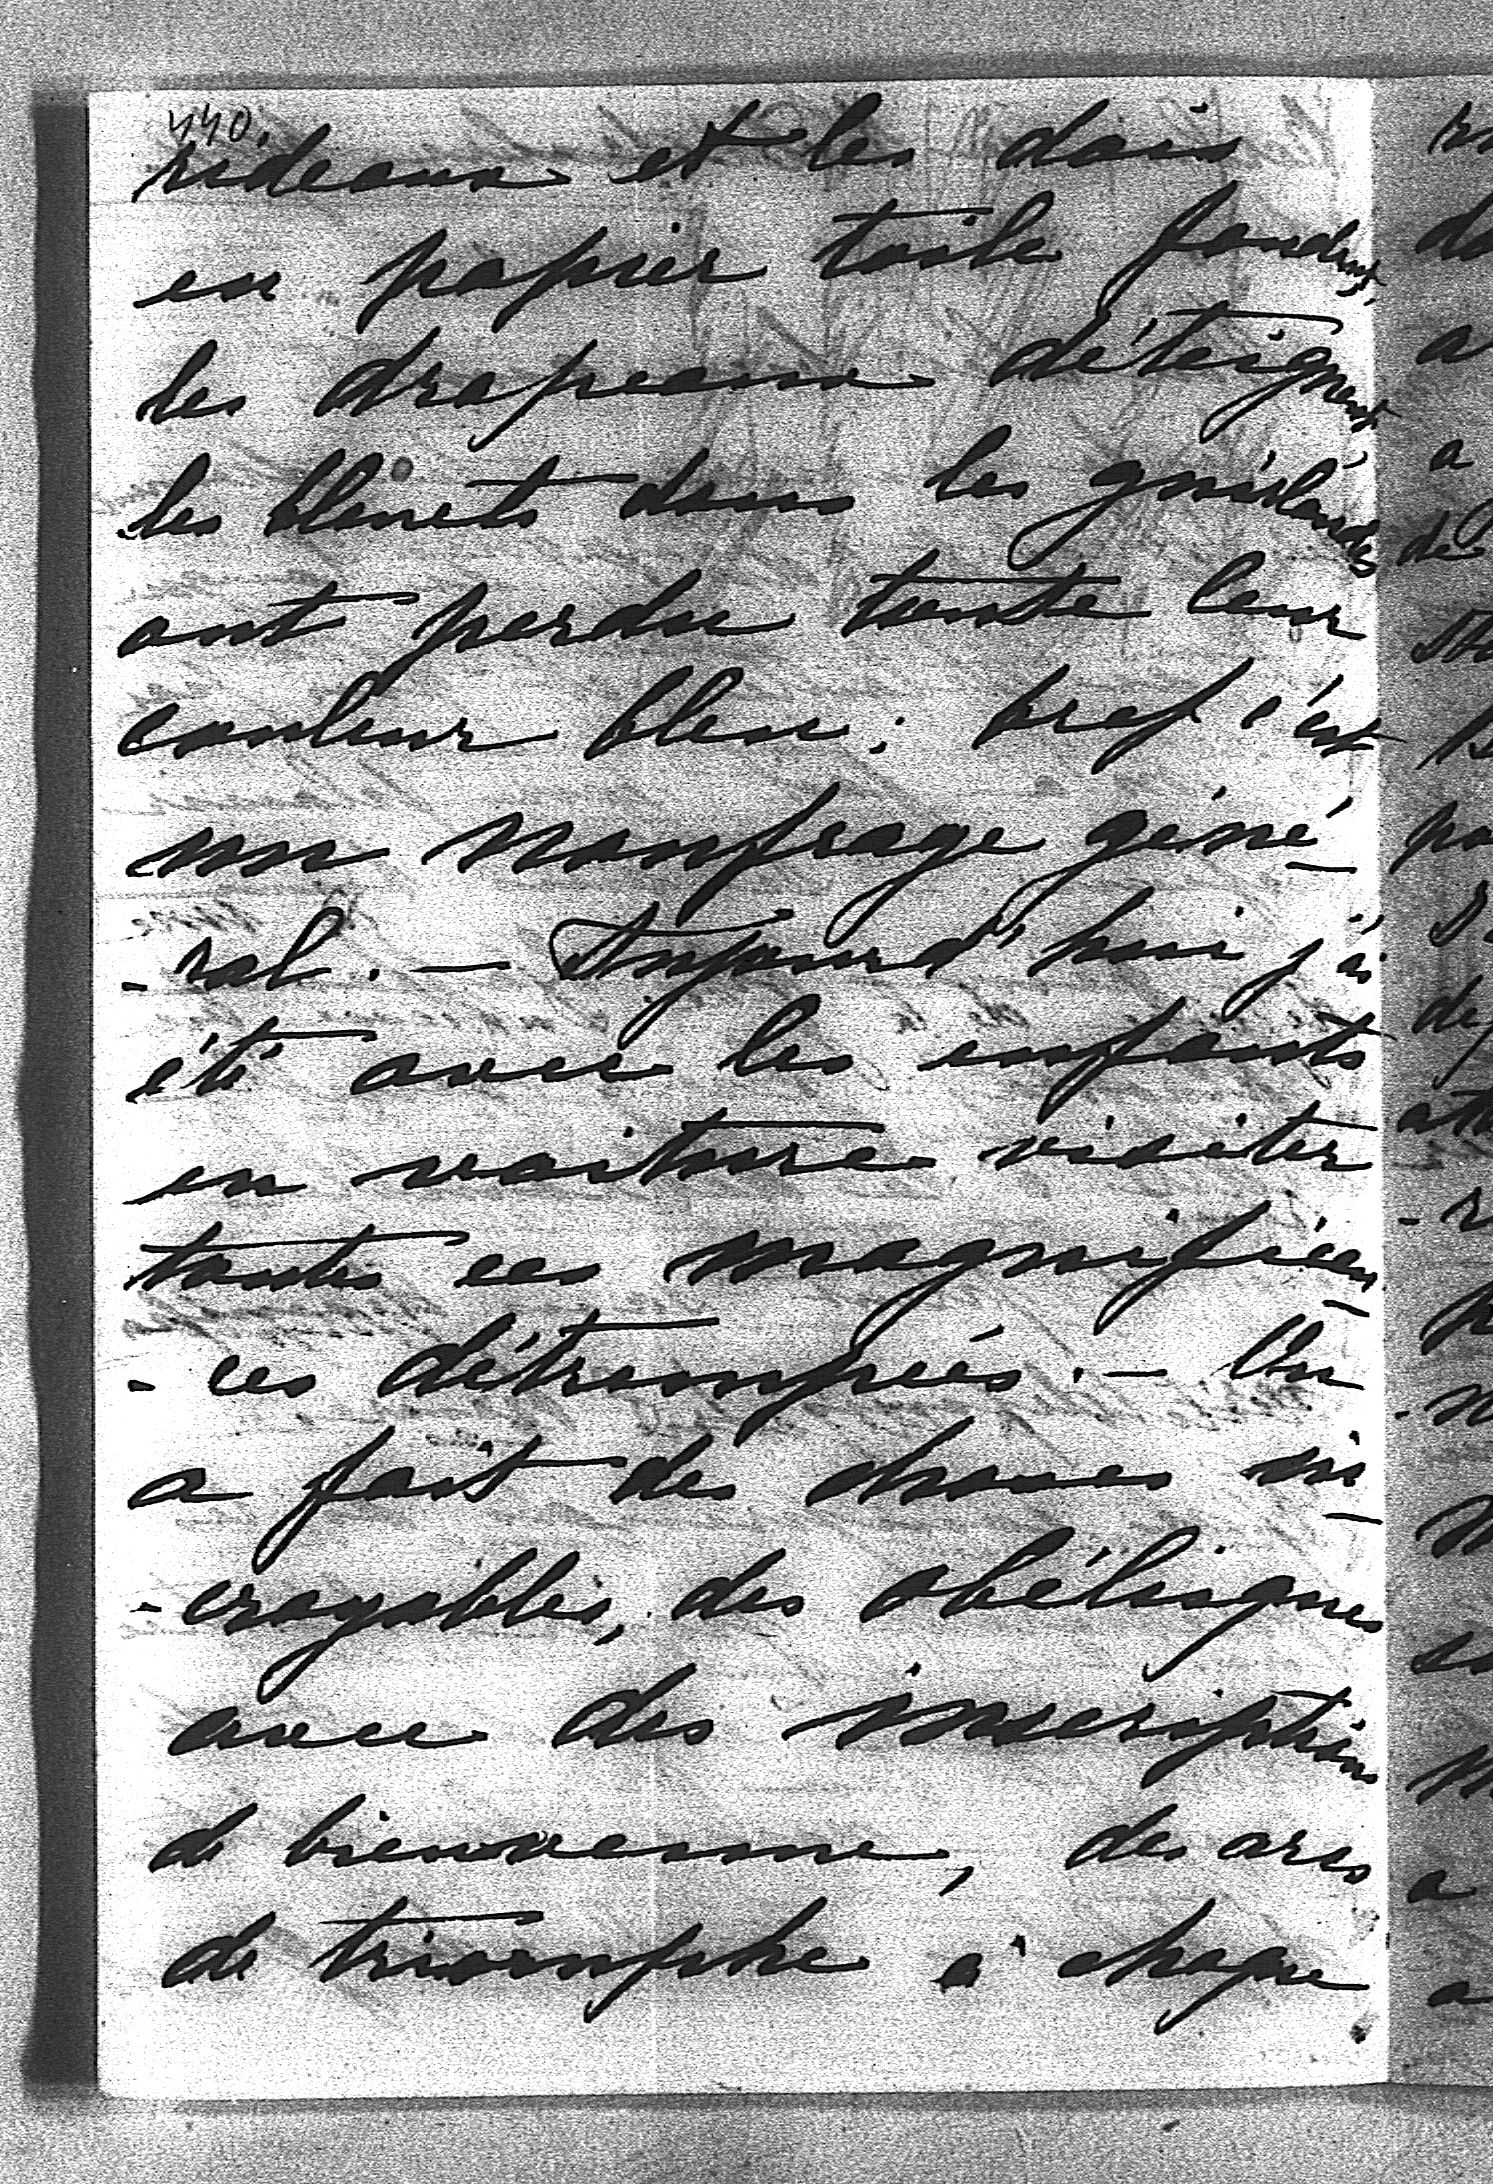 440.
rideaux et les dais
en papier toile fondent,
les drapeaux déteignent
les bluets dans les guirlandes
ont perdu toute leur
couleur bleu: bref c'est
un naufrage géné-
-ral. — Aujourd'hui j'ai
été avec les enfants
en voiture visiter
toutes ces magnificen-
-ces détrempées. — On
a fait des choses in-
-croyables, des obélisques
avec des inscriptions
de bienvenue, des arcs
de triomphe à chaque